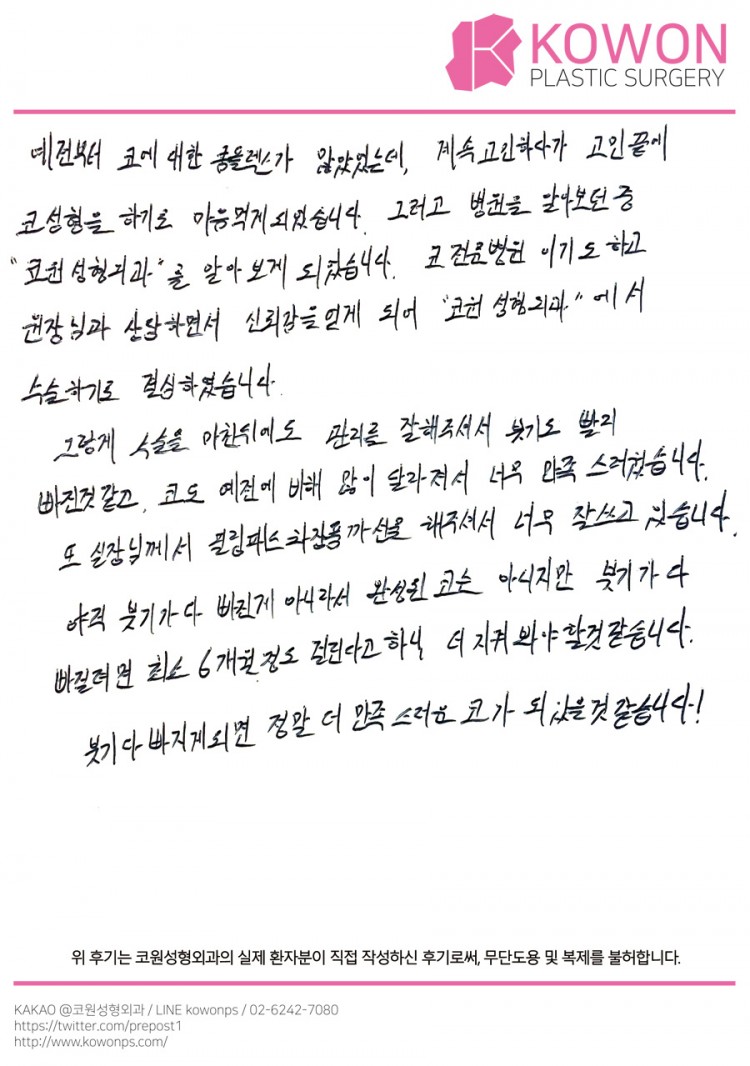 KOWON
PLASTIC SURGERY
예전부터 코에 대한 콤플렉스가 많았었는데, 계속 고민하다가 고민끝에
코성형을 하기로 마음먹게되었습니다. 그러고 병원을 알아보던 중
"코원성형외과"를 알아보게 되었습니다. 코전문병원 이기도 하고
원장님과 상담하면서 신뢰감을얻게 되어 "코원성형외과"에서
수술하기로 결심하였습니다.
그렇게 수술을 마친뒤에도 관리를 잘해주셔서 붓기도 빨리
빠진것같고, 코도 예전에 비해 많이 달라져서 너무 만족스러웠습니다.
또 실장님께서 화장품까지 선물 해주셔서 너무 잘쓰고 있습니다.
아직 붓기가다 빠진게 아니라서 완성된 코는 아니지만 붓기가 다
빠질려면 최소 6개월정도 걸린다고하니 더 지켜봐야할것같습니다.
붓기다빠지게되면 정말 더 만족스러운 코가 되었을것같습니다!
위 후기는 코원성형외과의 실제 환자분이 직접 작성하신 후기로써, 무단도용 및 복제를 불허합니다.
KAKAO @코원성형외과 / LINE kowonps / 02-6242-7080
https://twitter.com/prepost1
http://www.kowonps.com/